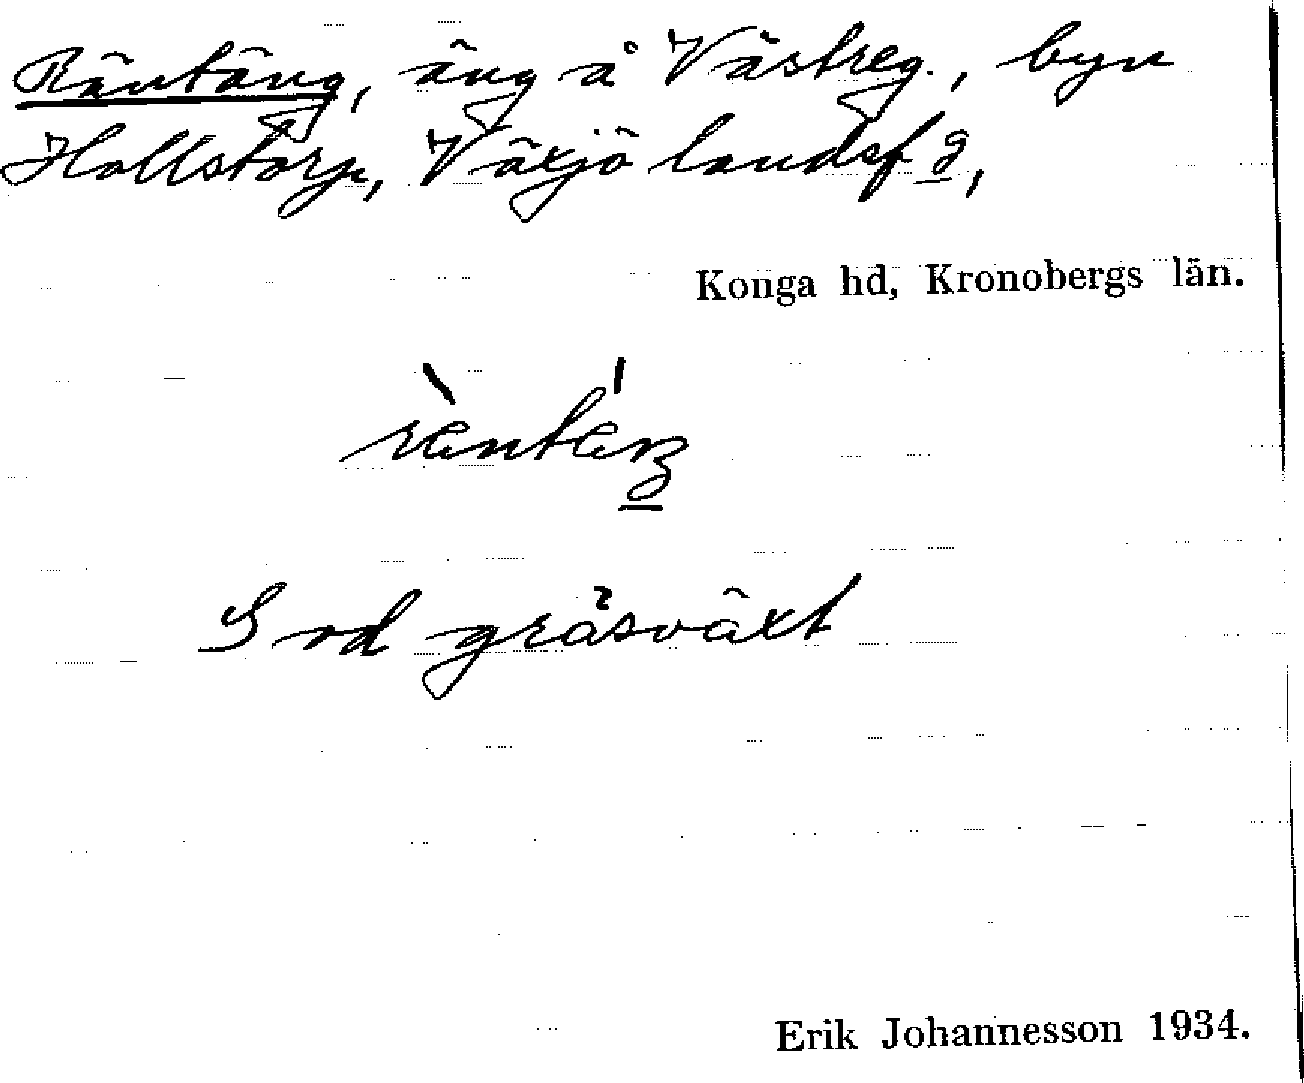 Räntäng, äng å Västreg., byn
Hollstorp, Växjö landsf g,
Konga hd, Kronobergs län.
räntäŋ
God gräsväxt
Erik Johannesson 1934.